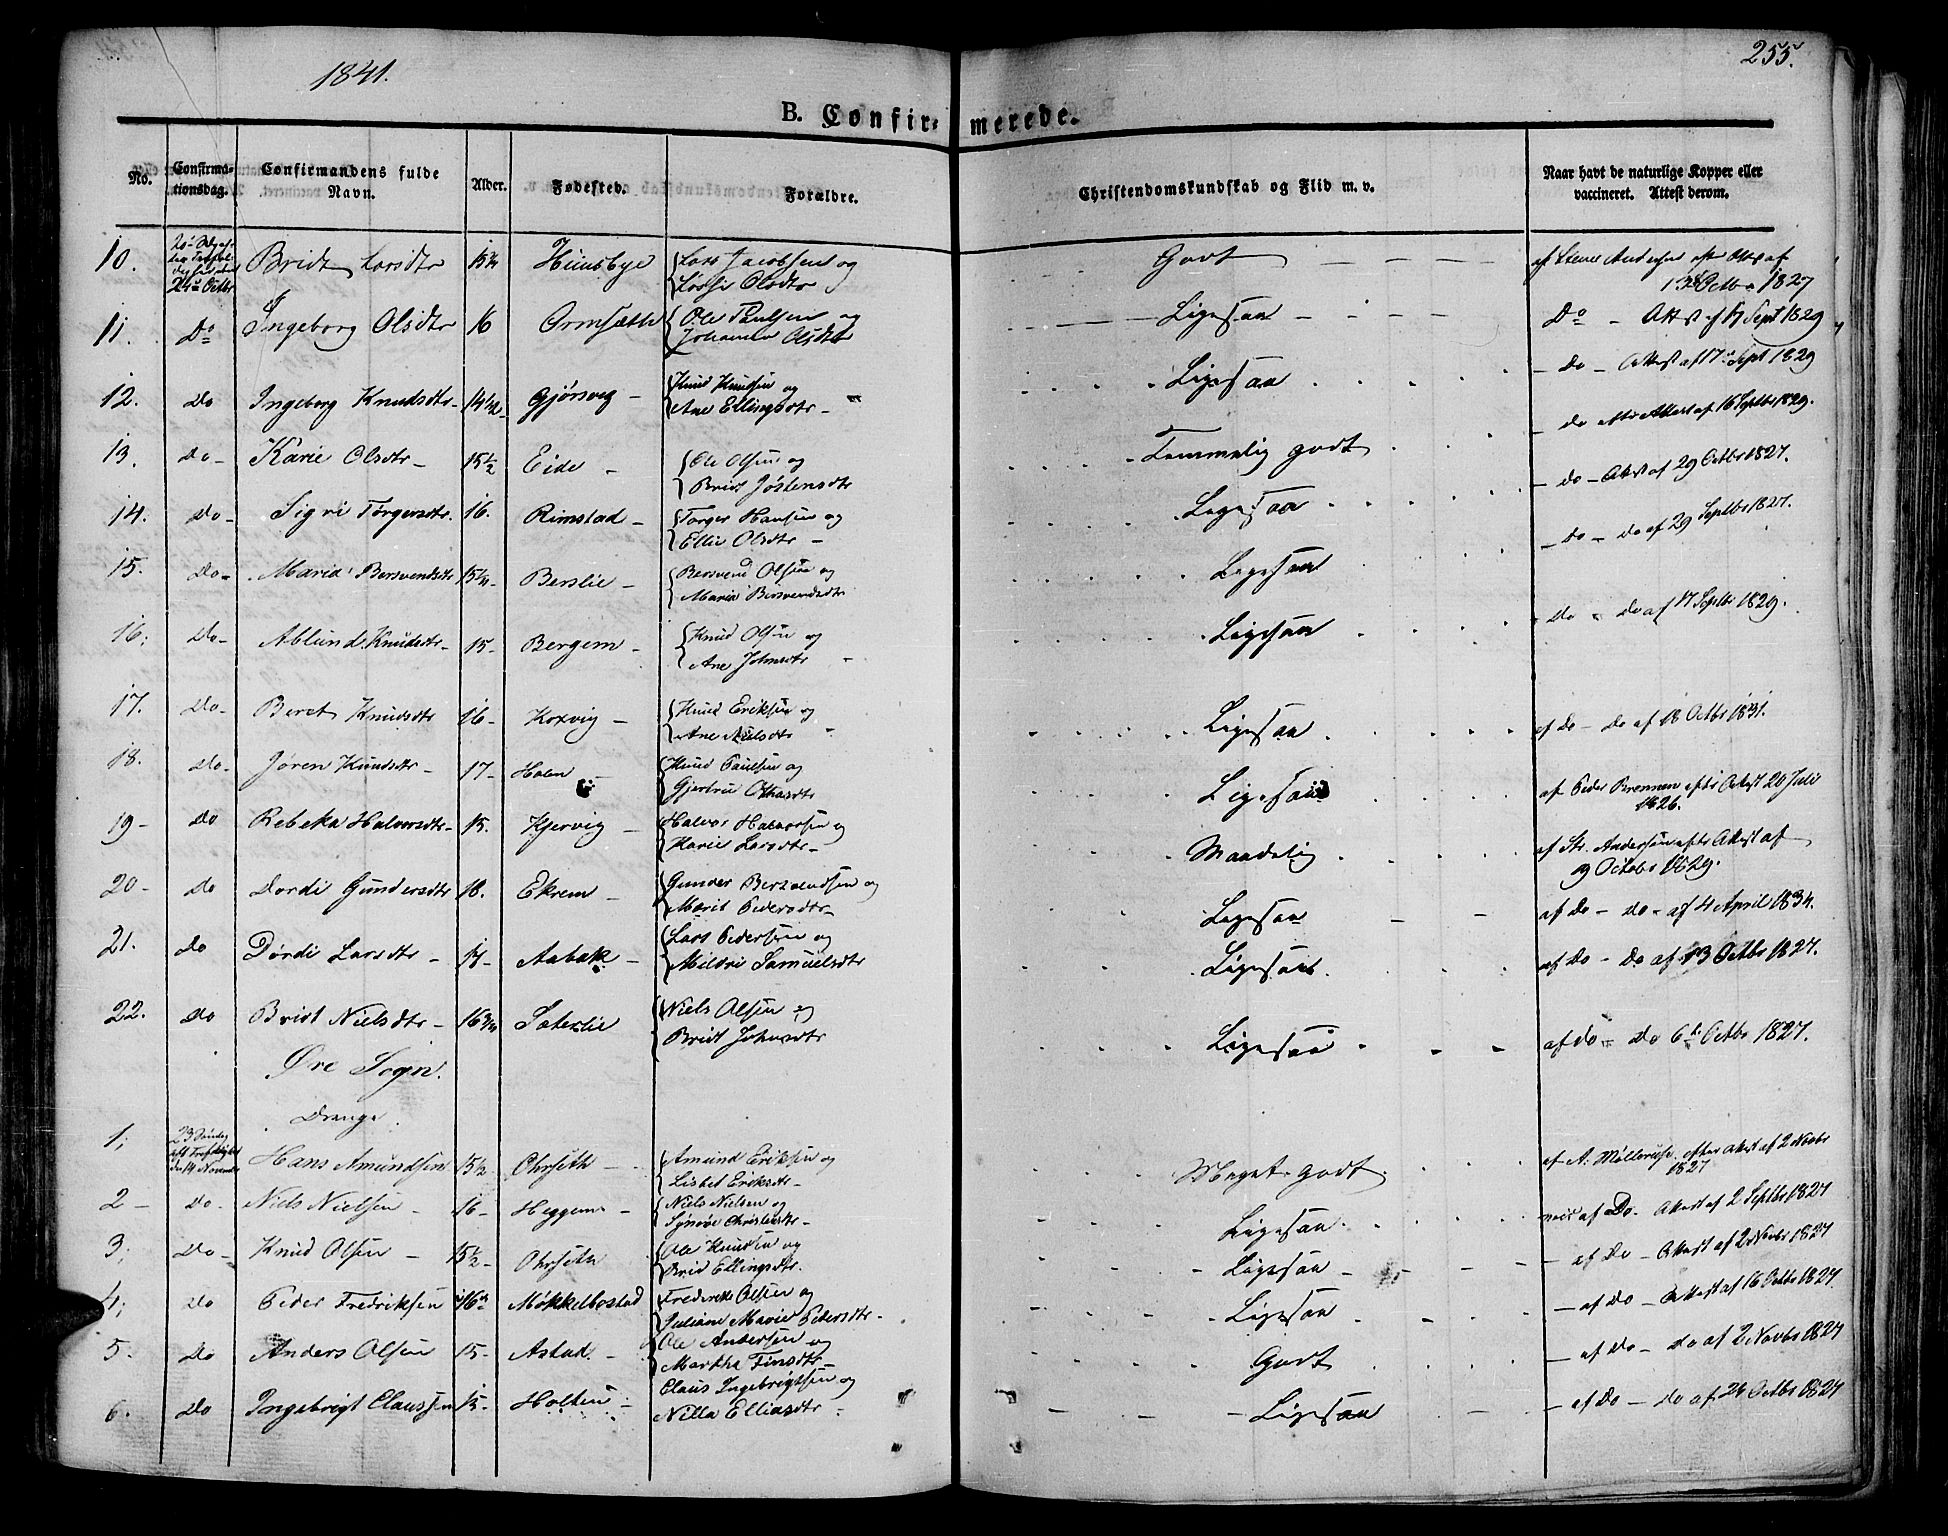 1841.
255.
B. Confirmerede.
No.
Confirmationsdag.
Confirmandens fulde Navn.
Alder.
Fødested.
Forældre.
Christendomskundskab og Flid m. v.
Naar havt de naturlige Kopper eller vaccineret. Attest derom.
10. 24 Octbr Bridt Larsdtr 15¼ Huusbye Lars Jacobsen og Olsdtr Godt af Andersen Attest af 13 Octbr 1827
11. Do Ingeborg Olsdtr 16 Ormsæth Ole Paulsen og Johanna Olsdtr Ligesaa Do - Attest af 17 Sept 1829
12. Do Ingeborg Knudsdtr 14½ Gjørsvig Knud Knudsen og Ane Ellingsdtr Ligesaa - Do - Attest af 17 Sept 1829
13. Do Karie Olsdtr 15½ Eide Ole Olsen og Bridt Jostensdtr Temmelig godt - do Attest af 16 Septbr 1829.
14. Do Sigri Torgersdtr. 16. Rimstad Torger Hansen og Ellie Olsdtr Ligesaa - do - Attest af 29 Octbr 1827.
15. Do Maria Bersvendsdtr 15¼ Berslie Bersvend Olsen og Maria Bersvendsdtr Ligesaa - Do - do af 29 Septbr 1827.
16; Do Ablund Knudsdtr 15 Bergem Knud Olsen og Ane Johnsdtr Ligesaa - Do - do af 17 Septbr 1829.
17. Do Beret Knudsdtr 16 Korsvig Knud Eriksen og Ane Nielsdtr Ligesaa af Do - Do af 18 Octbr 1831.
18. Do Jøren Knudsdtr 17 Holen Knud Paulsen og Gjertru Ligesaa af Peder Brennen efter Attest 20 Juli 1826.
19 Do Rebeka Halvorsdtr 15. Kjervig Halvor Halvorsen og Karie Larsdtr Maadelig af Str. Andersen efter Attest af 9 Octobr 1829.
20 Do Dordi Gundersdtr 18. Ekrem Gunder Bersvendsen og Marit Pedersdtr Ligesaa af Do - do - af 4 April 1834.
21. Do Dordi Larsdtr 17 Aabak Lars Pedersen og Mildri Samuelsdtr Ligesaa af Do - Do af 13 Octbr 1827.
22. Do Bridt Nielsdtr 16¾ Sæterlie Niels Olsen og Bridt Johnsdtr Ligesaa af do - Do 6 Octbr 1827.
Øre Sogn.
Drenge.
1; 23 Søndag 14 November Hans Amundsen 15½ Ohrseth Amund Eriksen og Lisbet Eriksdtr Meget godt af A. efter Attest af 2 Novbr 1827
2 Do Niels Nielsen 16 Heggem Niels Nielsen og Synnøve Christensdtr Ligesaa af Do Attest af 2 Septbr 1827
3; Do Knud Olsen 15½ Ohrseth Ole Knudsen og Brid Ellingsdtr Ligesaa - af Do - Attest af 2 Novbr 1827
4; Do Peder Fredriksen 16 Mokkelbostad Frederik Olsen og Juliane Marie Pedersdtr Ligesaa - af Do - Attest af 16 Octbr 1827.
5. Do Anders Olsen 15 Astad Ole Andersen og Martha Finsdtr Godt - af Do - do af 2 Novbr 1827
6. Do Ingebrigt Claussen 15 Holten Claus Ingebrigtsen og Nilla Elliasdtr Ligesaa - af Do - Do af 24 Octbr 1827